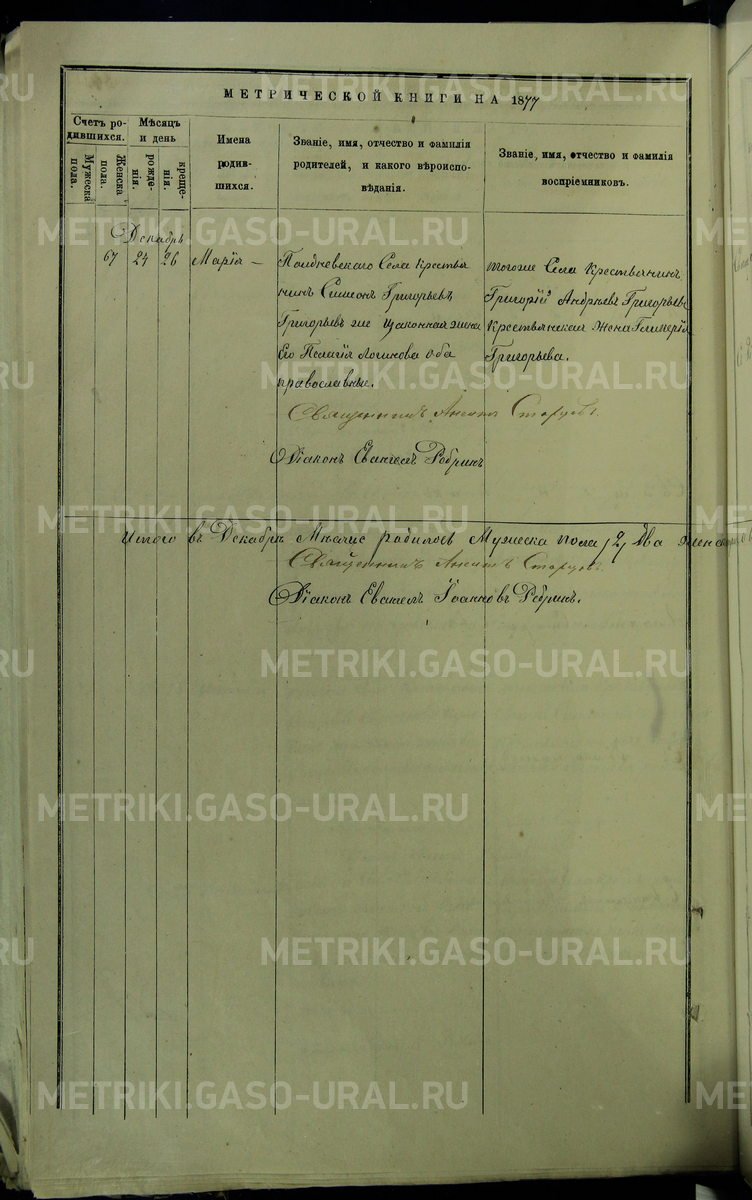 МЕТРИЧЕСКОЙ КНИГИ НА 1877
Счетъ ро-
дившихся.
Мужеска
пола.
Женска
пола.
Мѣсяцъ
и день
рожде-
нія.
креще-
нія.
Имена
родив-
шихся.
Званіе, имя, отчество и фамилія
родителей, и какого вѣроиспо-
вѣданія.
Званіе, имя, отчество и фамилія
воспріемниковъ.
Декабрь
67 24 26 Марія –
Полдневскаго Села Крестья
нинъ Симеонъ Григорьевъ
Григорьевъ же Законная жена
Его Пелагія Логинова оба
православные.
тогоже Села Крестьянинъ
Григорій Андреевъ Григорьевъ
Крестьянская Жена Гликерія
Григорьева.
Священникъ
Діаконъ Евангелъ Ребринъ
Итого въ Декабрѣ Мѣсяцѣ родилось Мужеска пола /2/ два женска
Священникъ
Діаконъ Евангелъ Іоанновъ Ребринъ.
METRIKI.GASO-URAL.RU